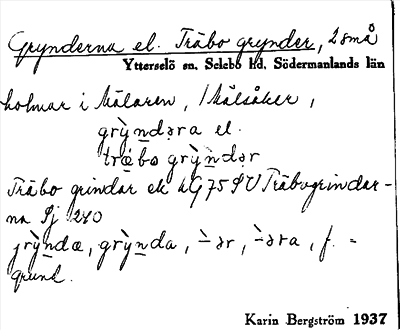 Grynderna el. Träbo grynder, 2 små
Ytterselö sn, Selebo hd, Södermanlands län
holmar i Mälaren, i Målsåker,
grỳndəra el.
trǽbo grỳndər
Träbo grindar ek AG 75 SV Träbogrindar-
na Sj 240
grỳndæ, grỳnda, -̀ər, -̀əra, f. =
grund.
Karin Bergström 1937